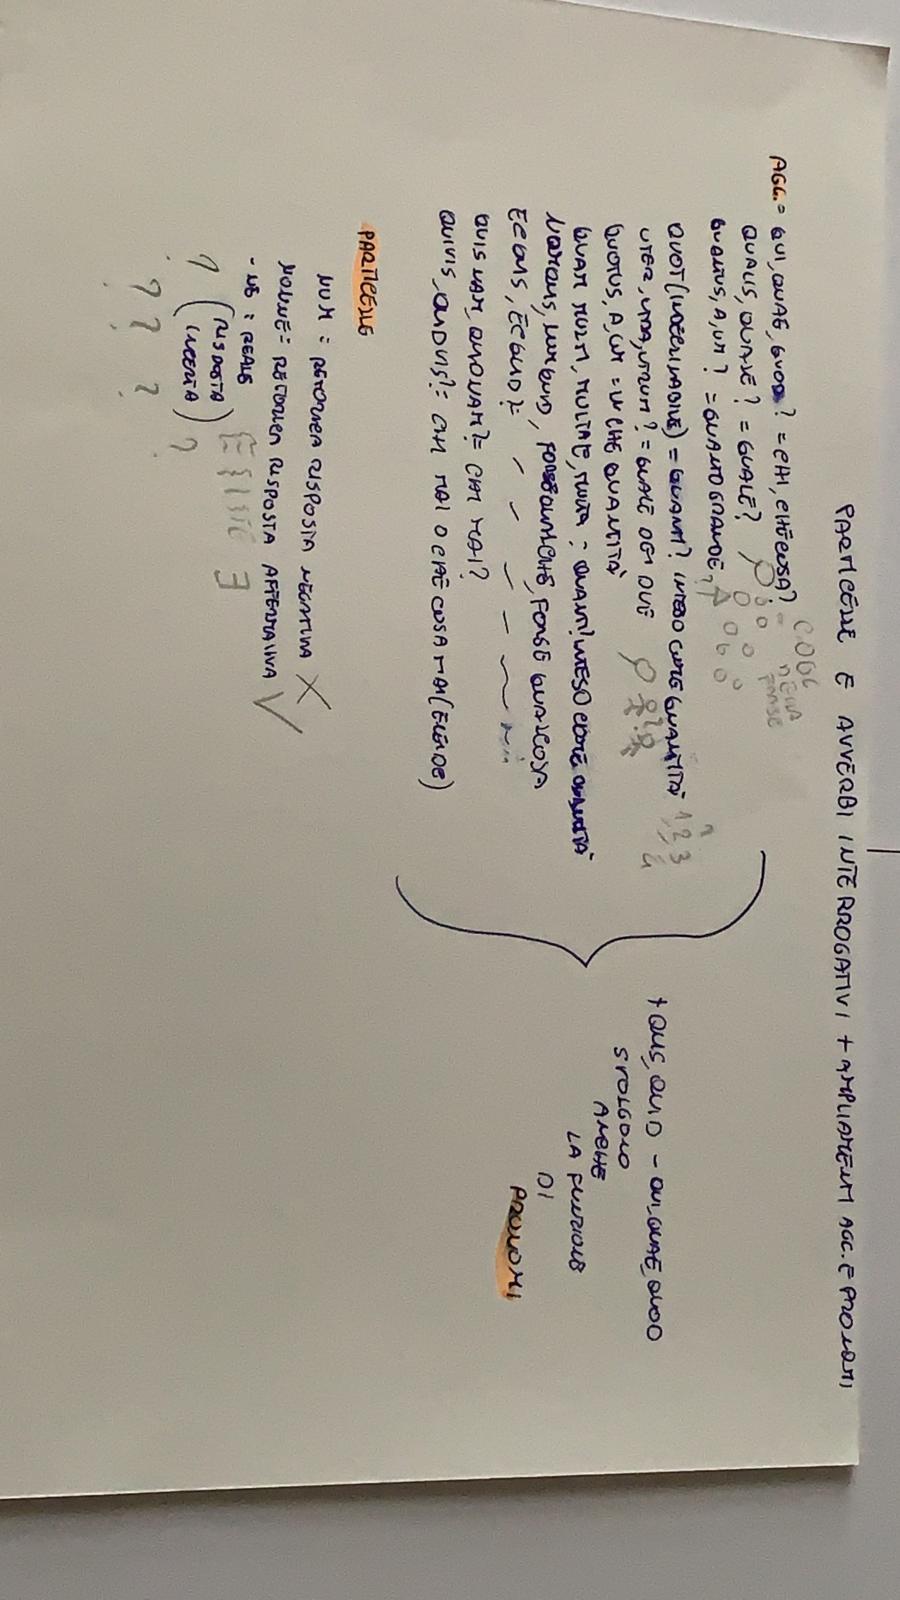 PARTICELLE E AVVERBI INTERROGATIVI + AMPLIAMENTI AGG. E PRONOMI
AGG. = QUI, QUAE, QUOD? = CHI, CHE COSA?
QUALIS, QUALE? = QUALE?
QUANTUS, A, UM? = QUANTO GRANDE?
QUOT (INDECLINABILE) = QUANTI? INTESO COME QUANTITÀ
UTER, UTRA, UTRUM? = QUALE DEI DUE
QUOTUS, A, UM = IN CHE QUANTITÀ
QUAM MULTI, MULTAE, MULTA = QUANTI? INTESO COME QUANTITÀ
NUMQUIS, NUMQUID, FORSE QUALCHE, FORSE QUALCOSA
ECQUIS, ECQUID?=
QUISNAM, QUIDNAM?= CHI MAI?
QUIVIS, QUIDVIS?= CHI MAI O CHE COSA MAI
+ QUIS, QUID - QUI, QUAE, QUOD
SVOLGONO
ANCHE
LA FUNZIONE
DI
PRONOMI
PARTICELLE
NUM = RISPOSTA NEGATIVA X
NONNE = RISPOSTA AFFERMATIVA V
-NE = REALE
(RISPOSTA
INCERTA)
? ? ? ?